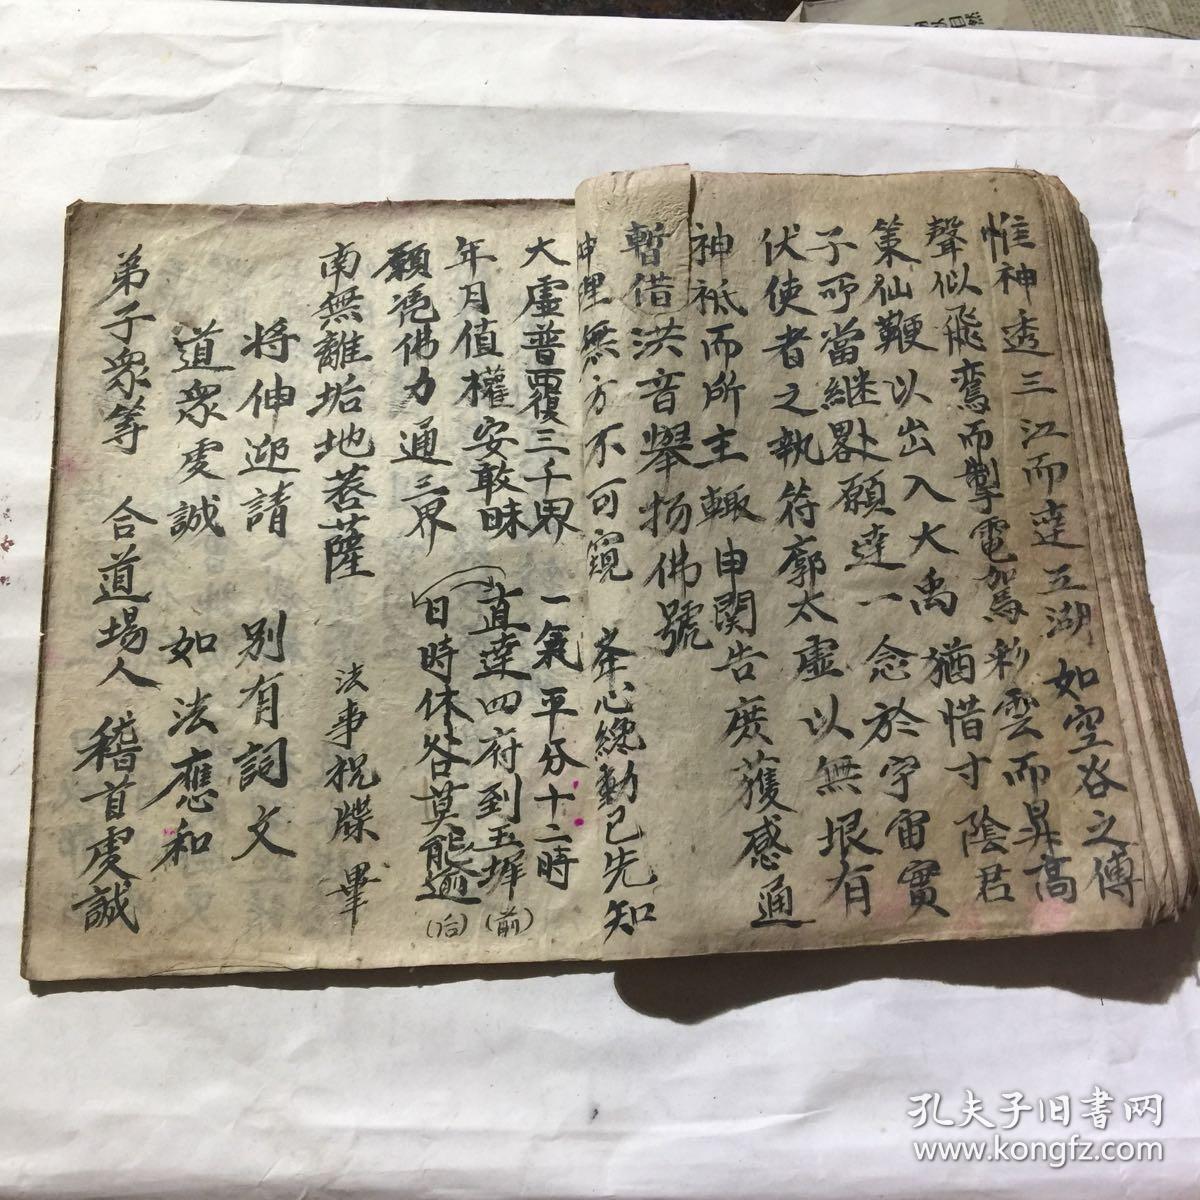 惟神透三江而達五湖如空谷之傳
聲似飛鸞而掣電駕彩雲而昇高
策仙鞭以出入大禹猶惜寸陰君
子所當継畧願達一念於宇宙實
伏使者之執符廓太虛以無垠有
神祇而所主輙申関告庹獲感通
暫借洪音舉扬佛號
神理無方不可窺 夆心纔動已先知
大虛普覆三千界 一氣平分十二時
年月值權安敢昧 直達四府到玉墀(前)
願凭佛力通三界 日時休咎莫能逾(后)
南無離垢地菩薩 法事祝牒畢
将伸迎請 別有詞文
道衆虔誠 如法應和
弟子衆等 合道場人 稽首虔誠
孔夫子旧书网
www.kongfz.com